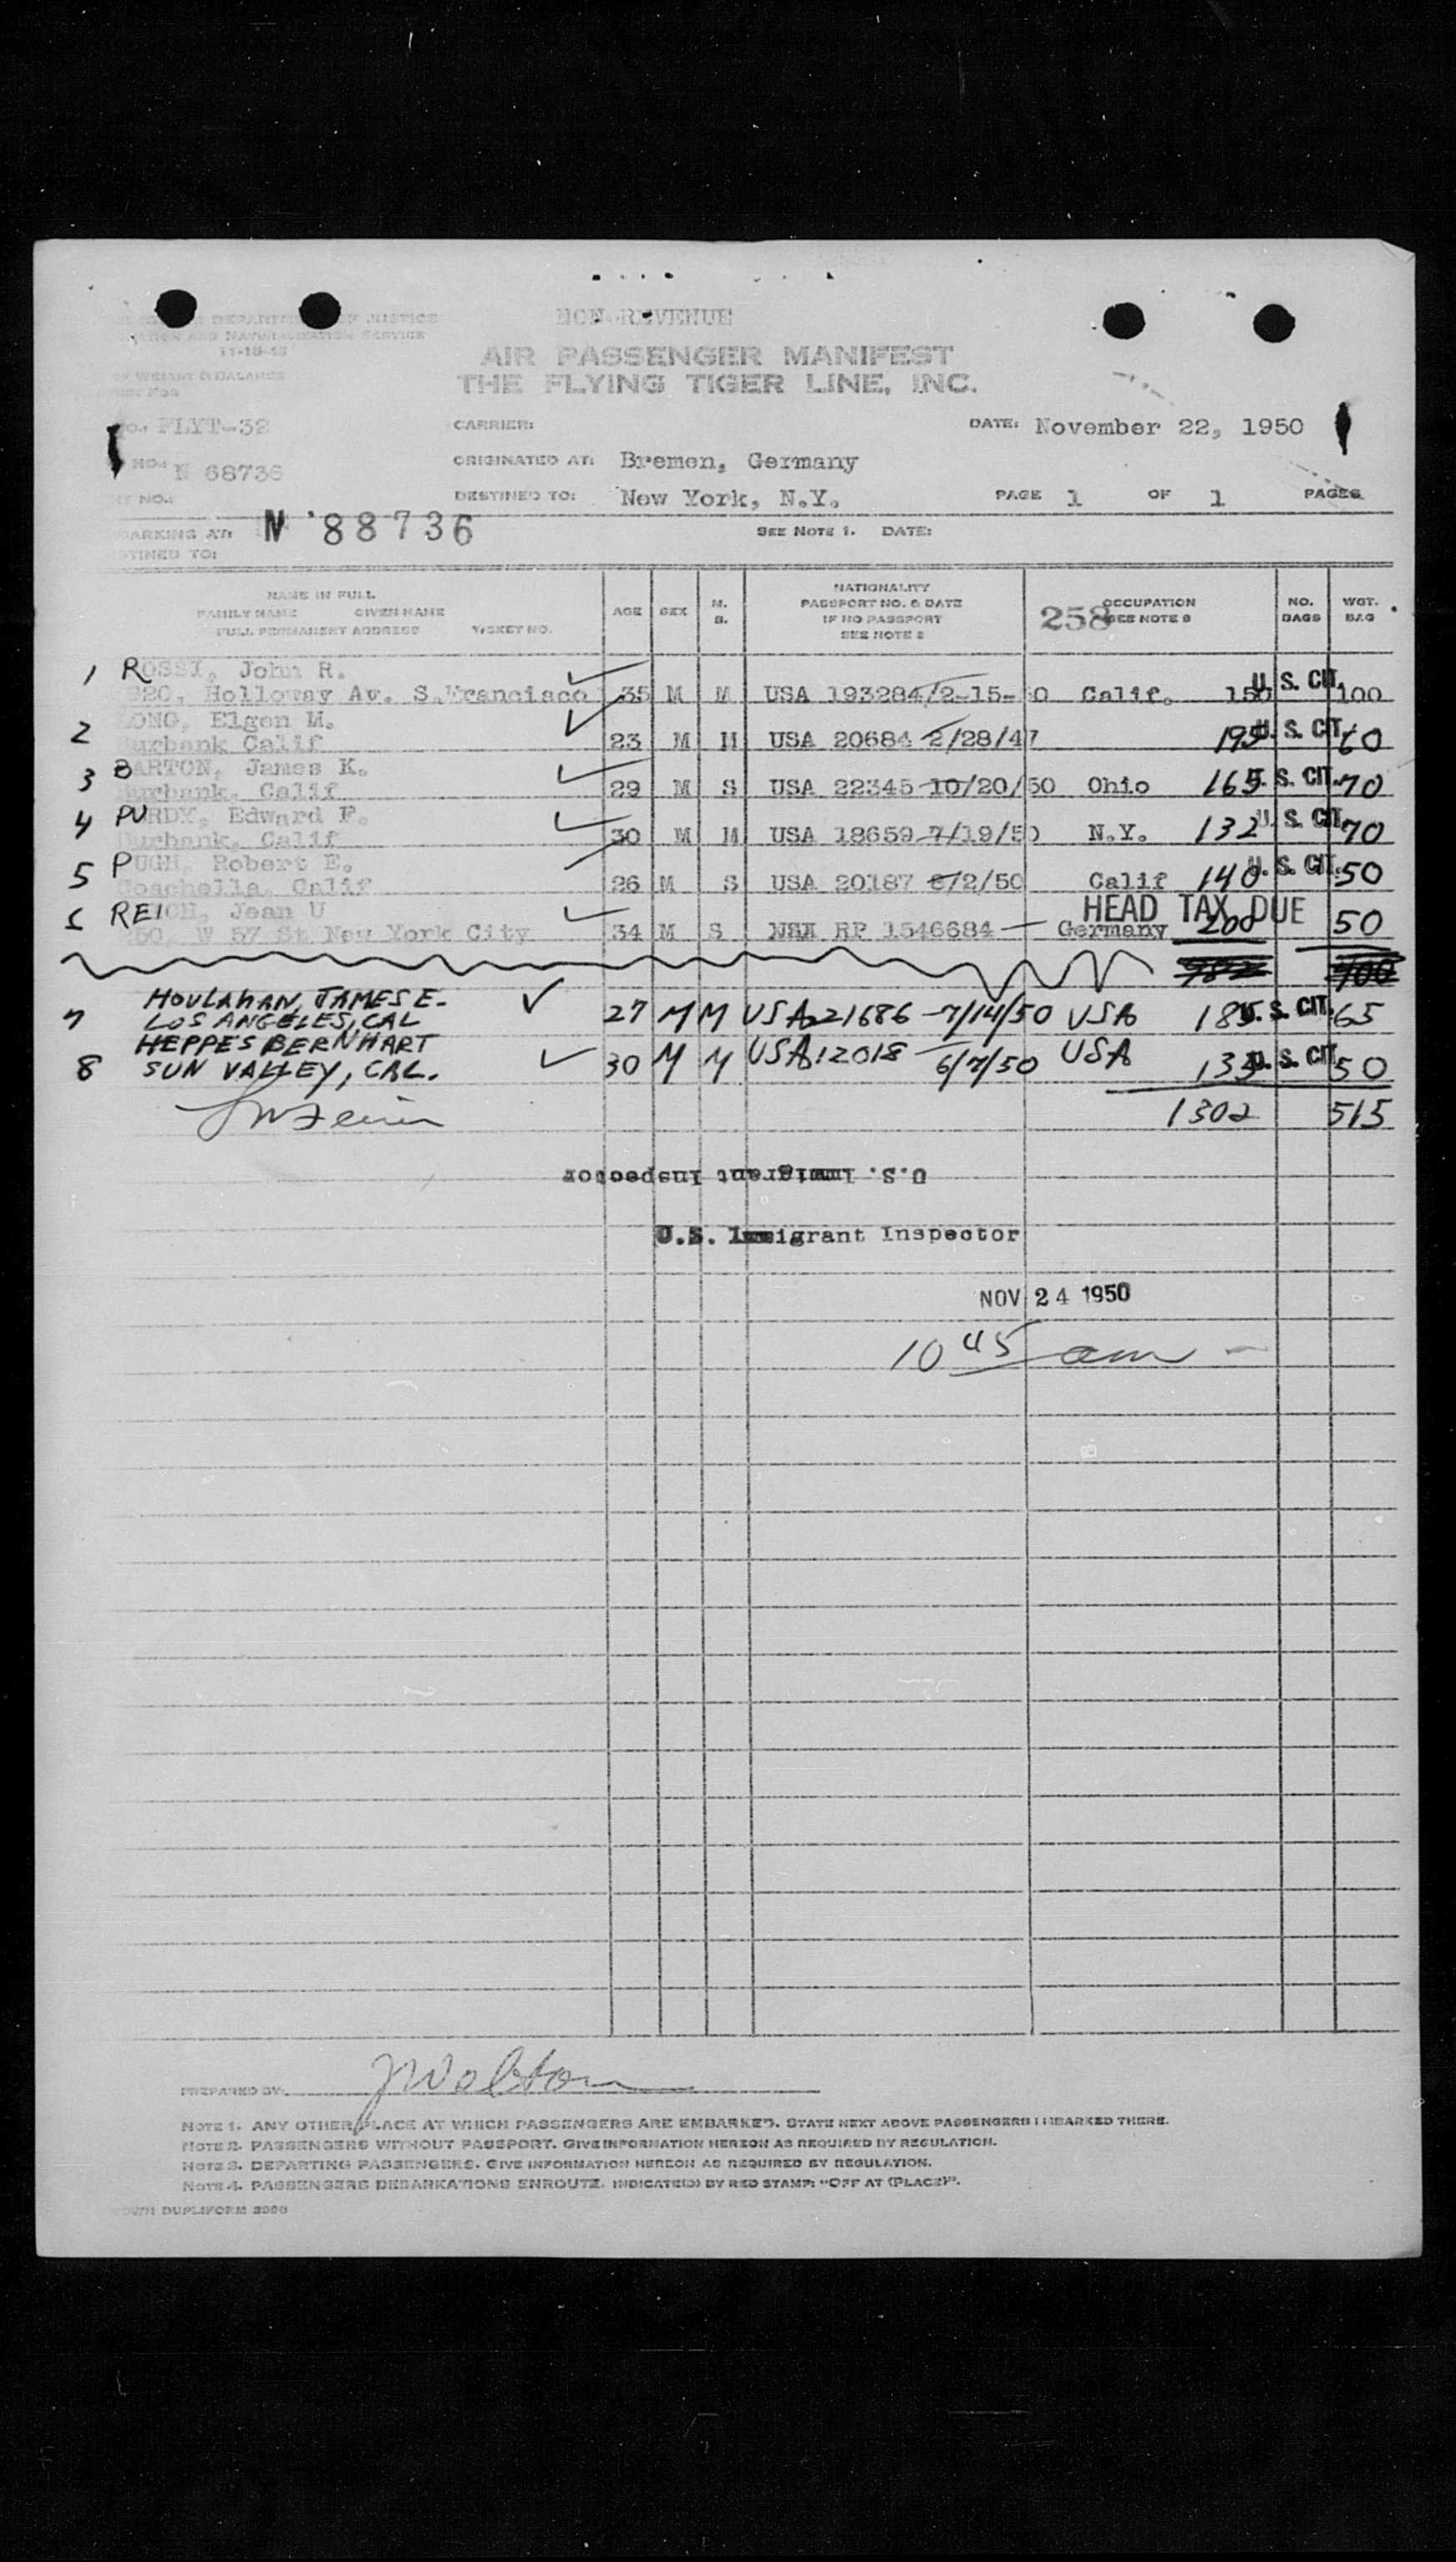 DEPARTMENT OF JUSTICE
NATURALIZATION SERVICE
11-15-45
WEIGHT & BALANCE
NON-REVENUE
AIR PASSENGER MANIFEST
THE FLYING TIGER LINE, INC.
FLYT-32
CARRIER:
DATE: November 22, 1950
NO. N 68736
ORIGINATED AT: Bremen, Germany
NO.
DESTINED TO: New York, N.Y.
PAGE 1 OF 1 PAGES
ARKING AT: N 88736
SEE NOTE 1. DATE:
TINED TO:
NAME IN FULL
FAMILY NAME GIVEN NAME
FULL PERMANENT ADDRESS TICKET NO.
AGE
SEX
M.
S.
NATIONALITY
PASSPORT NO. & DATE
IF NO PASSPORT
SEE NOTE 2
258
OCCUPATION
SEE NOTE 3
NO.
BAGS
WGT.
BAG
1 ROSSI, John R.
920, Holloway Av. S.Francisco 35 M M USA 193284/2-15-50 Calif. 150 U. S. CIT. 100
2 LONG, Elgen M.
Burbank Calif 23 M M USA 20684 2/28/47 195 U. S. CIT. 60
3 BARTON, James K.
Burbank, Calif 29 M S USA 22345 10/20/50 Ohio 165 U. S. CIT. 70
4 PURDY, Edward F.
Burbank, Calif 30 M M USA 18659 7/19/50 N.Y. 132 U. S. CIT. 70
5 PUGH, Robert E.
Coachella, Calif 26 M S USA 20187 8/2/50 Calif 140 U. S. CIT. 50
6 REICH, Jean U
W 57 St New York City 34 M S RP 1546684 — Germany 200 HEAD TAX DUE 50
982 400
7 HOULAHAN, JAMES E.
LOS ANGELES, CAL 27 M M USA 221686 - 7/14/50 USA 185 U. S. CIT. 65
8 HEPPES BERNHART
SUN VALLEY, CAL. 30 M M USA 12018 - 6/7/50 USA 135 U. S. CIT. 50
1302 515
U.S. Immigrant Inspector
U.S. Immigrant Inspector
NOV 24 1950
10 45 am -
PREPARED BY: J Wolton
NOTE 1. ANY OTHER PLACE AT WHICH PASSENGERS ARE EMBARKED. STATE NEXT ABOVE PASSENGERS EMBARKED THERE.
NOTE 2. PASSENGERS WITHOUT PASSPORT. GIVE INFORMATION HEREON AS REQUIRED BY REGULATION.
NOTE 3. DEPARTING PASSENGERS. GIVE INFORMATION HEREON AS REQUIRED BY REGULATION.
NOTE 4. PASSENGERS DEBARKATIONS ENROUTE. INDICATE(D) BY RED STAMP: "OFF AT (PLACE)".
DUPLIFORM